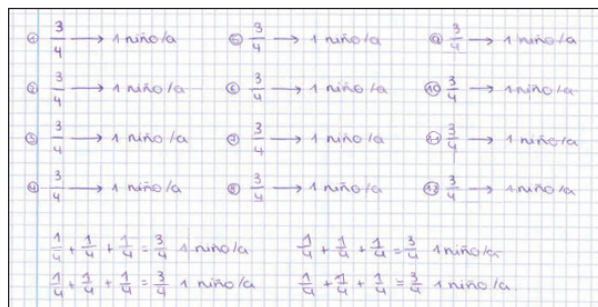 ① 3/4 → 1 niño/a ⑤ 3/4 → 1 niño/a ⑨ 3/4 → 1 niño/a
② 3/4 → 1 niño/a ⑥ 3/4 → 1 niño/a ⑩ 3/4 → 1 niño/a
③ 3/4 → 1 niño/a ⑦ 3/4 → 1 niño/a ⑪ 3/4 → 1 niño/a
④ 3/4 → 1 niño/a ⑧ 3/4 → 1 niño/a ⑫ 3/4 → 1 niño/a
1/4 + 1/4 + 1/4 = 3/4 1 niño/a 1/4 + 1/4 + 1/4 = 3/4 1 niño/a
1/4 + 1/4 + 1/4 = 3/4 1 niño/a 1/4 + 1/4 + 1/4 = 3/4 1 niño/a